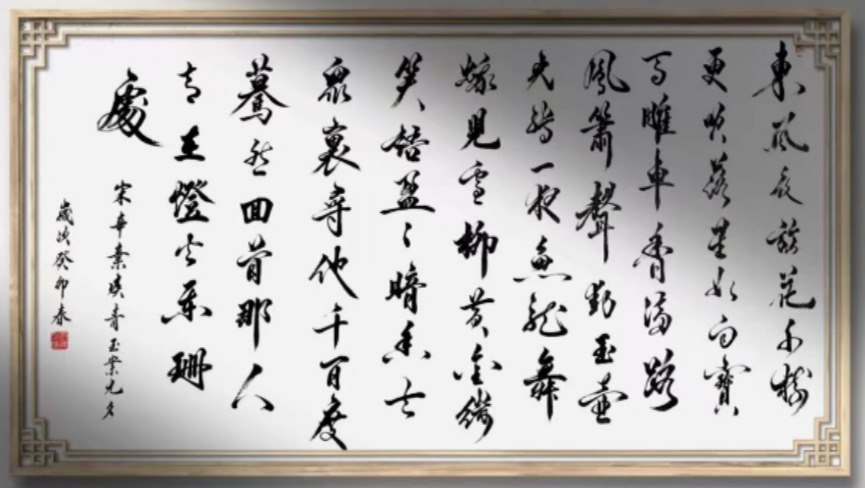 東風夜放花千樹
更吹落星如雨寶
馬雕車香滿路
鳳簫聲動玉壺
光轉一夜魚龍舞
蛾兒雪柳黃金縷
笑語盈〻暗香去
眾裏尋他千百度
驀然回首那人
却在燈火闌珊
處
宋辛棄疾青玉案元夕
歲次癸卯春